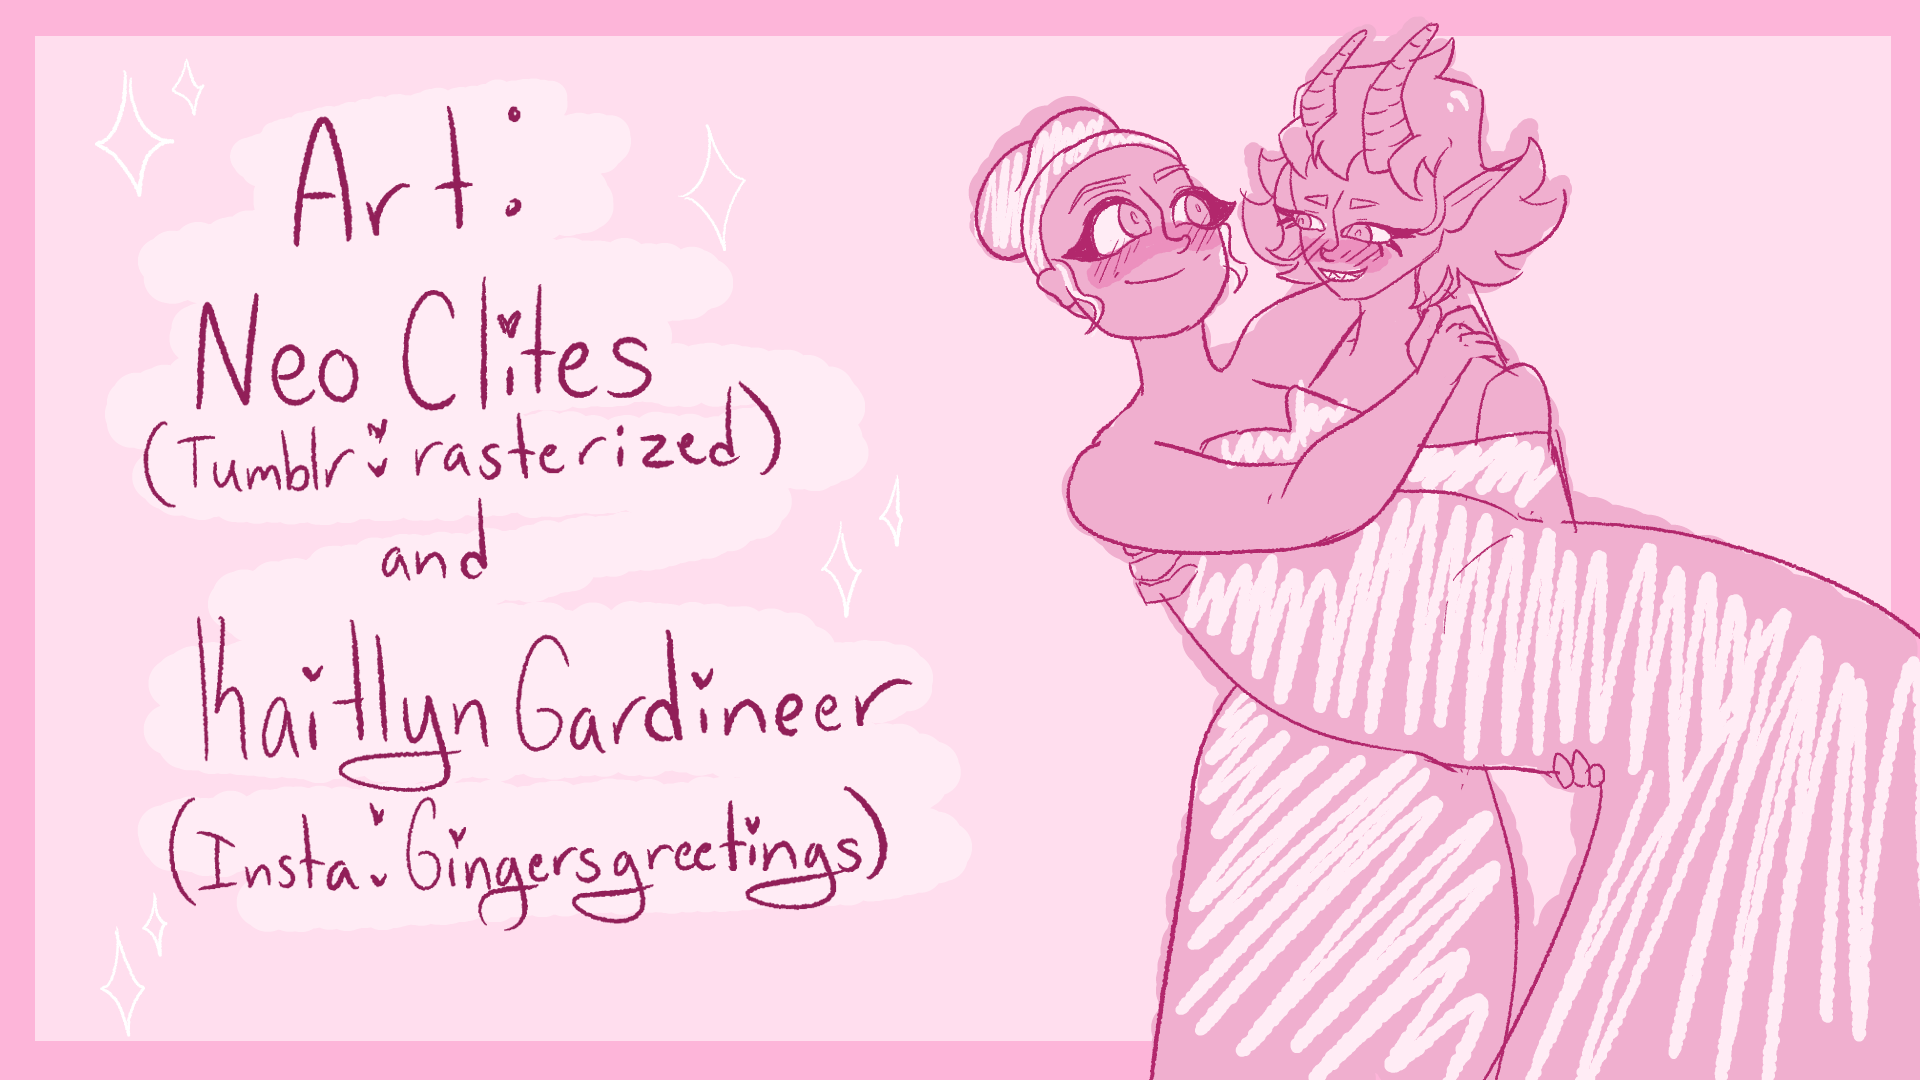 Art:
Neo Clites
(Tumblr: rasterized)
and
Kaitlyn Gardineer
(Insta: Gingersgreetings)